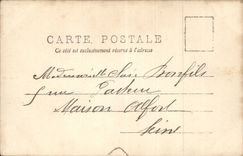 CARTE POSTALE
Ce côté est exclusivement réservé à l'adresse
Mademoiselle Suse Bonfils
5 rue Pasteur
Maison Alfort
Seine